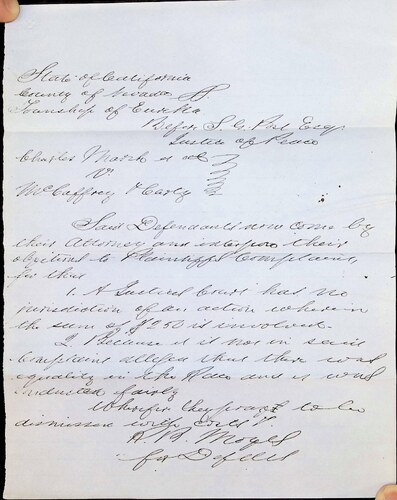 State of California
County of Nevada } ss
Township of Eureka
Before S. G. Esqr.
Justice of Peace
Charles Marsh et al
V.
McCaffrey &
Said Defendants now come by
their Attorney and interpose their
objections to Plaintiffs Complaint,
for that
1. A Justices Court has no
jurisdiction of an action wherein
the sum of $250 is involved.
2 Because it is not in said
Complaint alleged that there was
equality in the Race and it was
Conducted fairly
Wherefore they pray to be
dismissed with Costs &.
for Defts